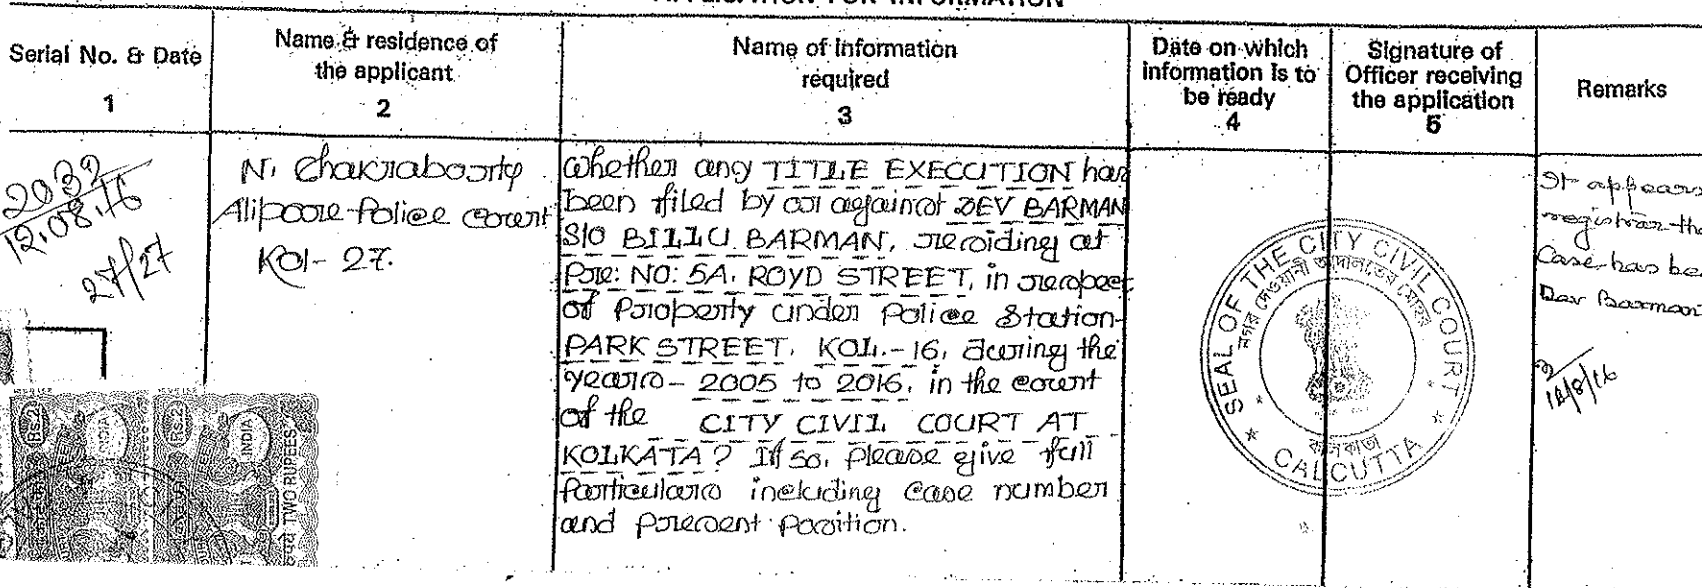 APPLICATION FOR INFORMATION
Serial No. & Date
1
Name & residence of
the applicant
2
Name of information
required
3
Date on which
information is to
be ready
4
Signature of
Officer receiving
the application
5
Remarks
2032
12.08.16
27/27
N. Chakraborty
Alipore Police Court
Kol- 27.
Whether any TITLE EXECUTION has
been filed by or against DEV BARMAN
S/O BILLU BARMAN, residing at
Pre: NO: 5A, ROYD STREET, in respect
of Property under Police Station-
PARK STREET, KOL.-16, during the
years- 2005 to 2016, in the court
of the CITY CIVIL COURT AT
KOLKATA? If so, please give full
Particulars including case number
and present position.
SEAL OF THE CITY CIVIL COURT
নগর দেওয়ানী আদালতের মোহর
কলিকাতা
CALCUTTA
It appears
registrar tha
Case has be
Dev Barman
Rs.2
INDIA
Rs.2
INDIA
TWO RUPEES